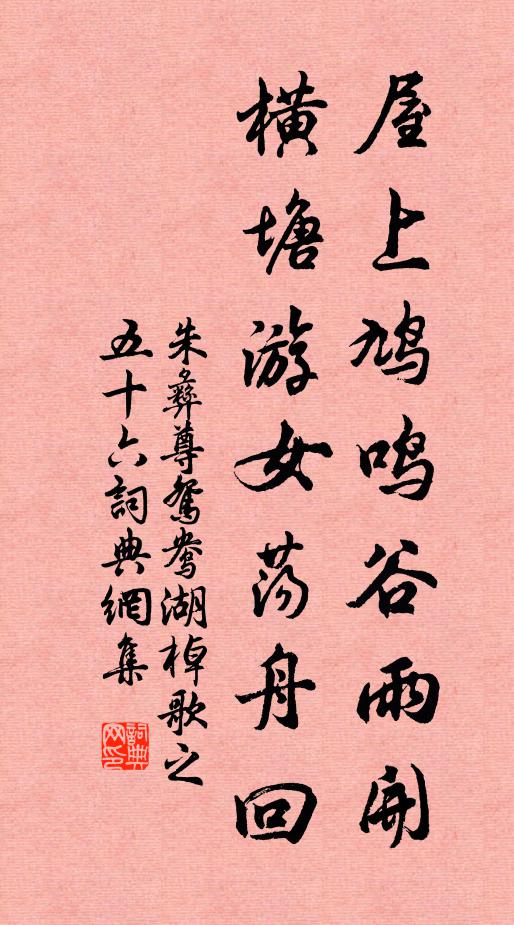 屋上鳩鳴谷雨開
橫塘游女蕩舟回
朱彝尊鴛鴦湖棹歌之
五十六詞典網集
詞典
网印